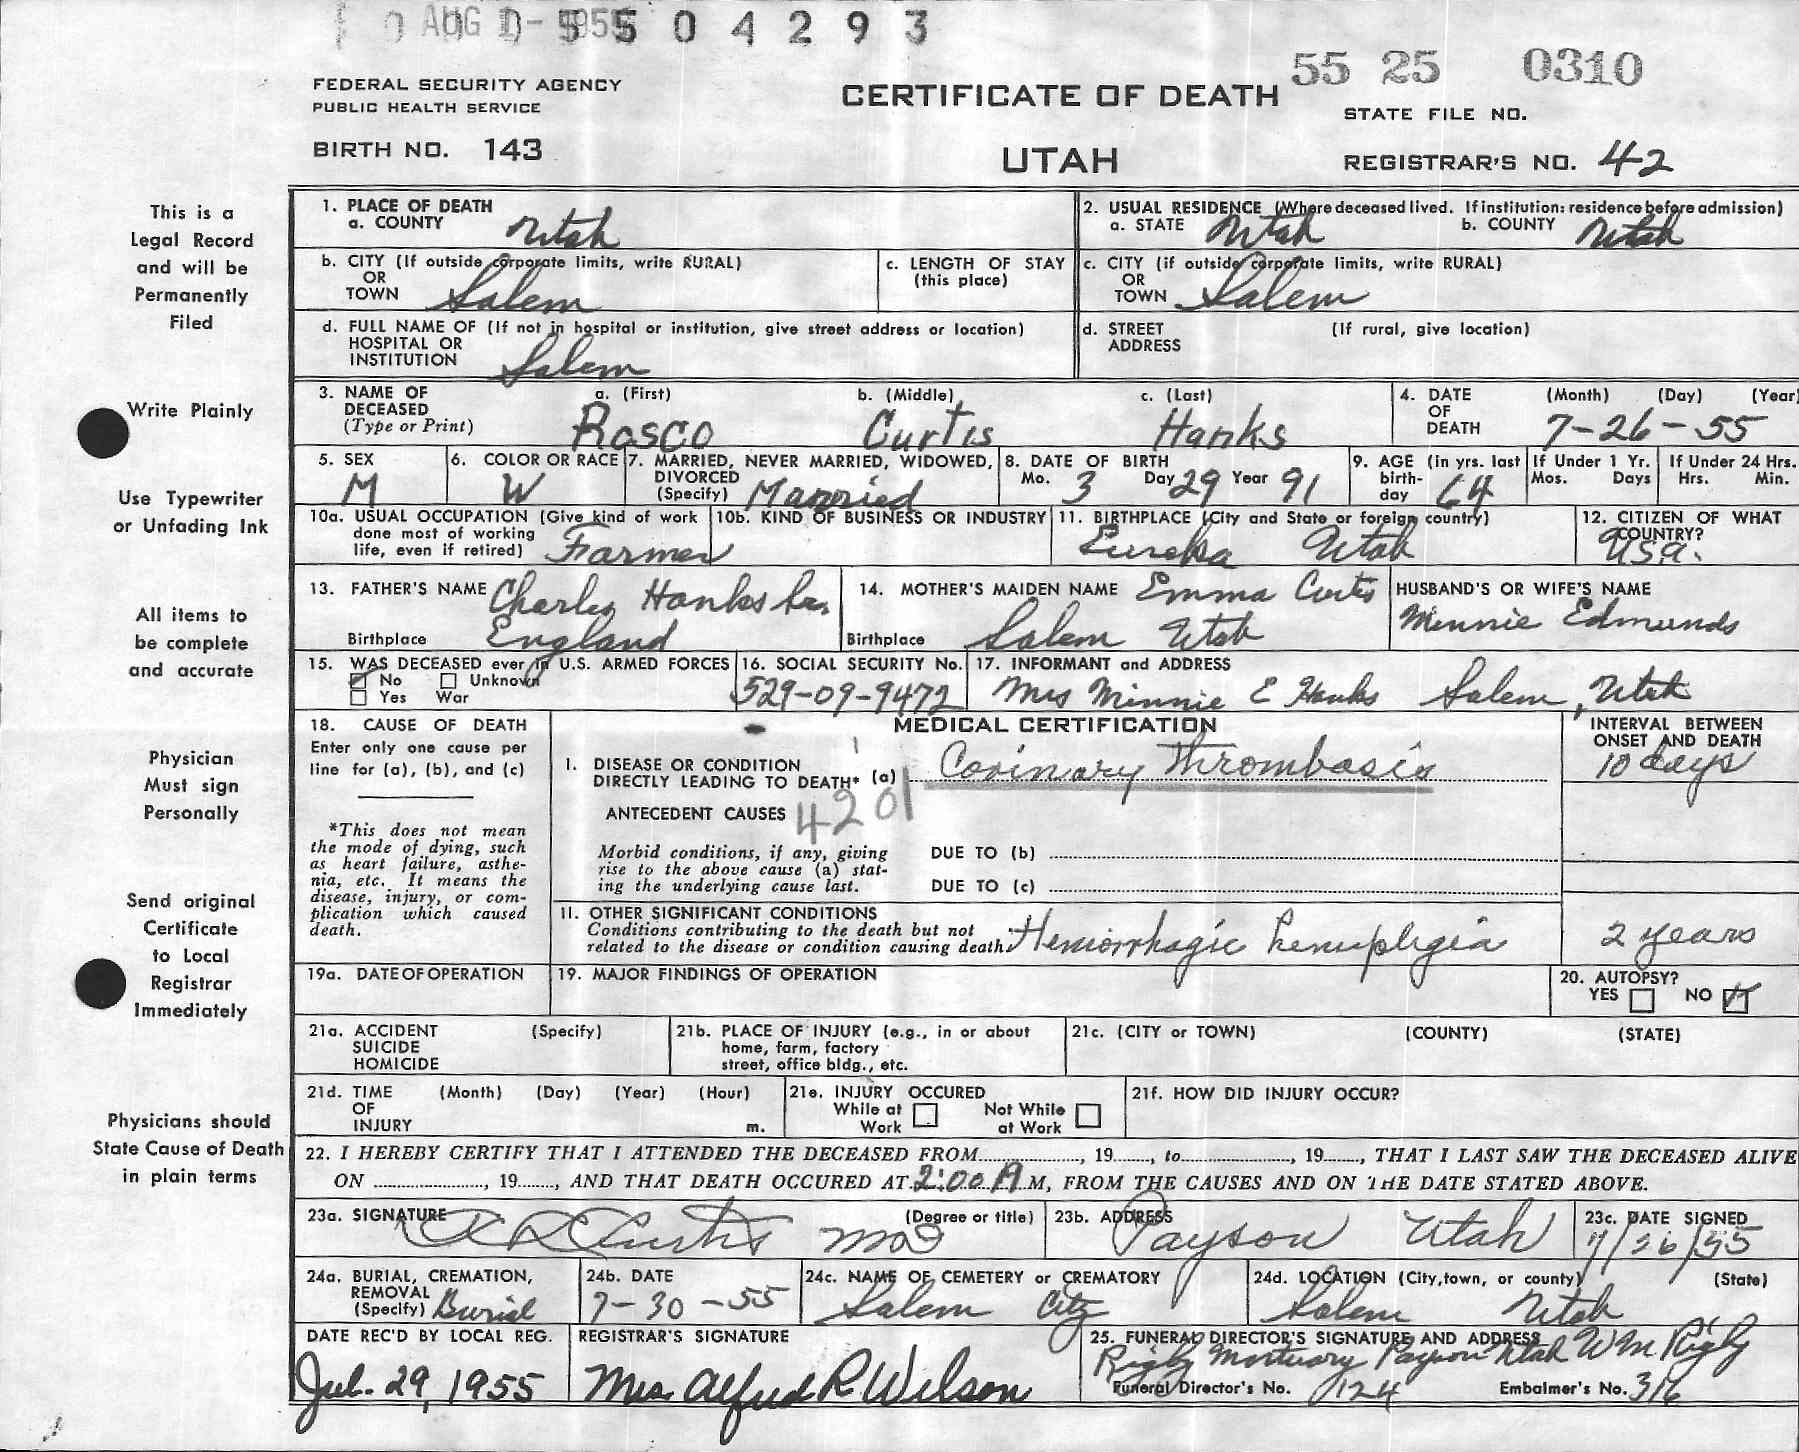 AUG 1 - 1955 5 0 4 2 9 3
55 25 0310
FEDERAL SECURITY AGENCY
PUBLIC HEALTH SERVICE
CERTIFICATE OF DEATH
STATE FILE NO.
BIRTH NO. 143
UTAH
REGISTRAR'S NO. 42
This is a
Legal Record
and will be
Permanently
Filed
Write Plainly
Use Typewriter
or Unfading Ink
All items to
be complete
and accurate
Physician
Must sign
Personally
Send original
Certificate
to Local
Registrar
Immediately
Physicians should
State Cause of Death
in plain terms
1. PLACE OF DEATH
a. COUNTY Utah
2. USUAL RESIDENCE (Where deceased lived. If institution: residence before admission)
a. STATE Utah b. COUNTY Utah
b. CITY (If outside corporate limits, write RURAL)
OR
TOWN Salem
c. LENGTH OF STAY
(this place)
c. CITY (if outside corporate limits, write RURAL)
OR
TOWN Salem
d. FULL NAME OF (If not in hospital or institution, give street address or location)
HOSPITAL OR
INSTITUTION Salem
d. STREET (If rural, give location)
ADDRESS
3. NAME OF a. (First) b. (Middle) c. (Last)
DECEASED
(Type or Print) Rosco Curtis Hanks
4. DATE (Month) (Day) (Year)
OF
DEATH 7-26-55
5. SEX
M
6. COLOR OR RACE
W
7. MARRIED, NEVER MARRIED, WIDOWED,
DIVORCED
(Specify) Married
8. DATE OF BIRTH
Mo. 3 Day 29 Year 91
9. AGE (in yrs. last
birth-
day 64
If Under 1 Yr.
Mos. Days
If Under 24 Hrs.
Hrs. Min.
10a. USUAL OCCUPATION (Give kind of work
done most of working
life, even if retired) Farmer
10b. KIND OF BUSINESS OR INDUSTRY
11. BIRTHPLACE (City and State or foreign country)
Eureka Utah
12. CITIZEN OF WHAT
COUNTRY?
USA.
13. FATHER'S NAME Charles Hanks Sr.
Birthplace England
14. MOTHER'S MAIDEN NAME Emma Curtis
Birthplace Salem Utah
HUSBAND'S OR WIFE'S NAME
Minnie Edmunds
15. WAS DECEASED ever in U.S. ARMED FORCES
No Unknown
Yes War
16. SOCIAL SECURITY No.
529-09-9472
17. INFORMANT and ADDRESS
Mrs Minnie E Hanks Salem, Utah
18. CAUSE OF DEATH
Enter only one cause per
line for (a), (b), and (c)
*This does not mean
the mode of dying, such
as heart failure, asthe-
nia, etc. It means the
disease, injury, or com-
plication which caused
death.
MEDICAL CERTIFICATION
INTERVAL BETWEEN
ONSET AND DEATH
I. DISEASE OR CONDITION
DIRECTLY LEADING TO DEATH* (a) Corinary Thrombosis 10 days
ANTECEDENT CAUSES 4201
Morbid conditions, if any, giving
rise to the above cause (a) stat-
ing the underlying cause last.
DUE TO (b)
DUE TO (c)
II. OTHER SIGNIFICANT CONDITIONS
Conditions contributing to the death but not
related to the disease or condition causing death. Hemorrhagic hemiplegia 2 years
19a. DATE OF OPERATION
19. MAJOR FINDINGS OF OPERATION
20. AUTOPSY?
YES NO
21a. ACCIDENT (Specify)
SUICIDE
HOMICIDE
21b. PLACE OF INJURY (e.g., in or about
home, farm, factory
street, office bldg., etc.
21c. (CITY or TOWN) (COUNTY) (STATE)
21d. TIME (Month) (Day) (Year) (Hour)
OF
INJURY m.
21e. INJURY OCCURED
While at Work Not While at Work
21f. HOW DID INJURY OCCUR?
22. I HEREBY CERTIFY THAT I ATTENDED THE DECEASED FROM, 19, to, 19, THAT I LAST SAW THE DECEASED ALIVE
ON, 19, AND THAT DEATH OCCURED AT 2:00 A M, FROM THE CAUSES AND ON THE DATE STATED ABOVE.
23a. SIGNATURE (Degree or title)
Curtis MD
23b. ADDRESS
Payson Utah
23c. DATE SIGNED
7/26/55
24a. BURIAL, CREMATION,
REMOVAL
(Specify) Burial
24b. DATE
7-30-55
24c. NAME OF CEMETERY or CREMATORY
Salem City
24d. LOCATION (City, town, or county) (State)
Salem Utah
DATE REC'D BY LOCAL REG.
Jul. 29, 1955
REGISTRAR'S SIGNATURE
Mrs. Alfred R Wilson
25. FUNERAL DIRECTOR'S SIGNATURE AND ADDRESS
Rigby Mortuary Payson Utah Wm Rigby
Funeral Director's No. 124 Embalmer's No. 316